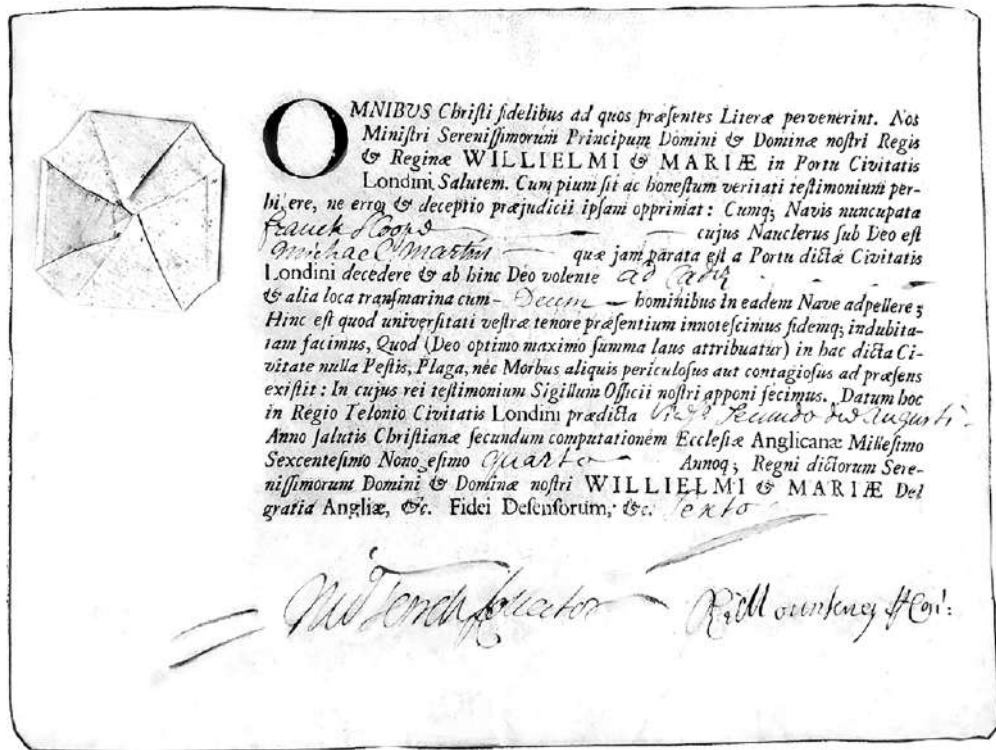 OMNIBUS Chriſti fidelibus ad quos præſentes Literæ pervenerint. Nos
Miniſtri Sereniſſimorum Principum Domini & Dominæ noſtri Regis
& Reginæ WILLIELMI & MARIÆ in Portu Civitatis
Londini Salutem. Cum pium ſit ac honeſtum veritati teſtimonium per-
hibere, ne error & deceptio præjudicii ipſam opprimat: Cumq; Navis nuncupata
cujus Nauclerus ſub Deo eſt
michael martin quæ jam parata eſt a Portu dictæ Civitatis
Londini decedere & ab hinc Deo volente ad Cadiz
& alia loca tranſmarina cum Decem hominibus in eadem Nave adpellere;
Hinc eſt quod univerſitati veſtræ tenore præſentium innoteſcimus fidemq; indubita-
tam facimus, Quod (Deo optimo maximo ſumma laus attribuatur) in hac dicta Ci-
vitate nulla Peſtis, Plaga, nec Morbus aliquis periculoſus aut contagioſus ad præſens
exiſtit: In cujus rei teſtimonium Sigillum Officii noſtri apponi fecimus. Datum hoc
in Regio Telonio Civitatis Londini prædicta ſecundo die Auguſti
Anno ſalutis Chriſtianæ ſecundum computationem Eccleſiæ Anglicanæ Milleſimo
Sexcenteſimo Nonogeſimo quarto Annoq; Regni dictorum Sere-
niſſimorum Domini & Dominæ noſtri WILLIELMI & MARIÆ Dei
gratia Angliæ, &c. Fidei Defenſorum, &c. Sexto